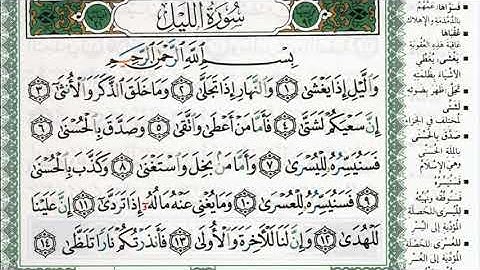 سُورَةُ اللَّيْلِ
بِسْمِ اللَّهِ الرَّحْمَٰنِ الرَّحِيمِ
وَاللَّيْلِ إِذَا يَغْشَىٰ ١ وَالنَّهَارِ إِذَا تَجَلَّىٰ ٢ وَمَا خَلَقَ الذَّكَرَ وَالْأُنثَىٰ ٣
إِنَّ سَعْيَكُمْ لَشَتَّىٰ ٤ فَأَمَّا مَنْ أَعْطَىٰ وَاتَّقَىٰ ٥ وَصَدَّقَ بِالْحُسْنَىٰ ٦
فَسَنُيَسِّرُهُ لِلْيُسْرَىٰ ٧ وَأَمَّا مَن بَخِلَ وَاسْتَغْنَىٰ ٨ وَكَذَّبَ بِالْحُسْنَىٰ
٩ فَسَنُيَسِّرُهُ لِلْعُسْرَىٰ ١٠ وَمَا يُغْنِي عَنْهُ مَالُهُ إِذَا تَرَدَّىٰ ١١ إِنَّ عَلَيْنَا
لَلْهُدَىٰ ١٢ وَإِنَّ لَنَا لَلْآخِرَةَ وَالْأُولَىٰ ١٣ فَأَنذَرْتُكُمْ نَارًا تَلَظَّىٰ ١٤
فَسَوَّاهَا: عَمَّهُمْ
بِالدَّمْدَمَةِ وَالإِهْلَاكِ
عُقْبَاهَا
عَاقِبَةَ هَذِهِ العُقُوبَةِ
يَغْشَى: يُغَطِّي
الأَشْيَاءَ بِظُلْمَتِهِ
تَجَلَّى: ظَهَرَ بِضَوْئِهِ
لَشَتَّى
لَمُخْتَلِفٌ فِي الجَزَاءِ
صَدَّقَ بِالْحُسْنَى
بِالمِلَّةِ الحُسْنَى
وَهِيَ الإِسْلَامُ
فَسَنُيَسِّرُهُ
فَسَنُوَفِّقُهُ وَنُهَيِّئُهُ
لِلْيُسْرَى: لِلْخَصْلَةِ
المُؤَدِّيَةِ إِلَى اليُسْرِ
لِلْعُسْرَى: لِلْخَصْلَةِ
المُؤَدِّيَةِ إِلَى العُسْرِ